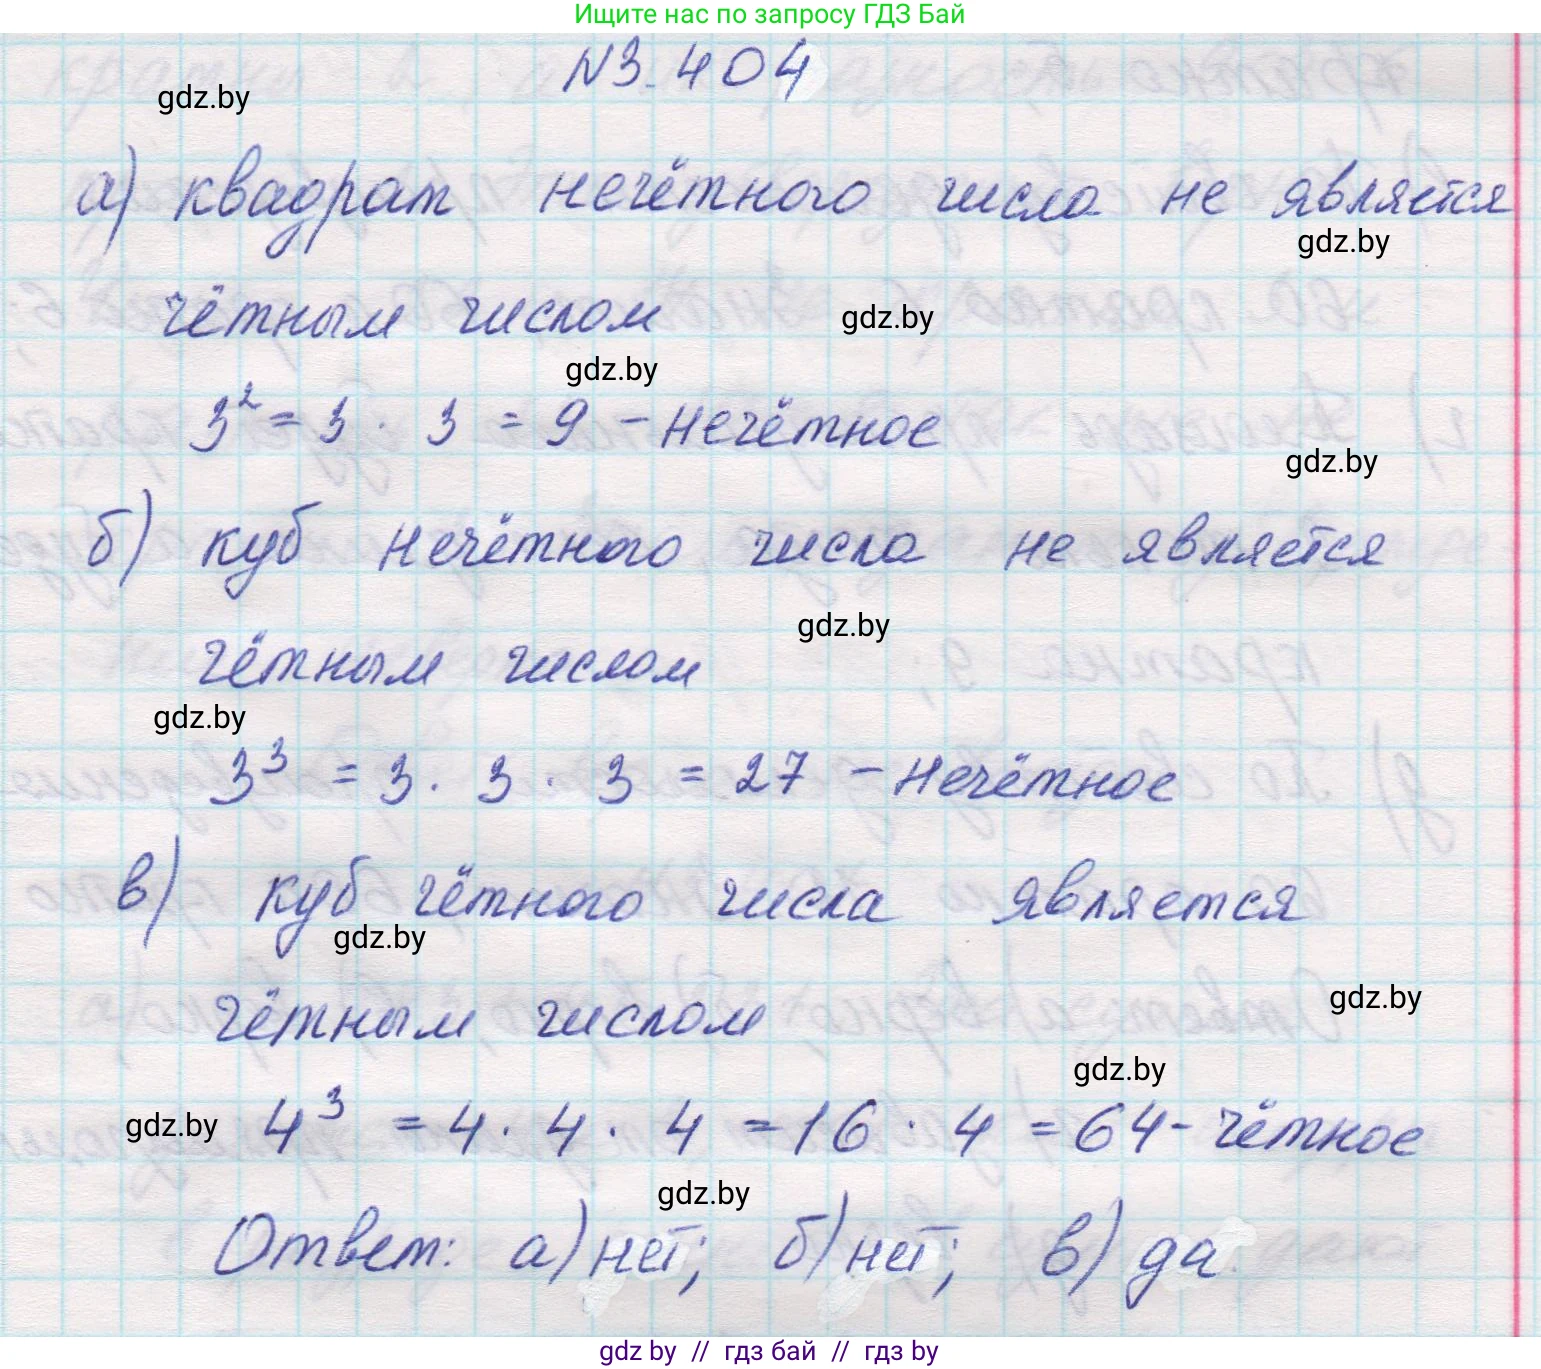 Ищите нас по запросу ГДЗ Бай
N3.404
gdz.by
а) квадрат нечётного числа не является
gdz.by
чётным числом
gdz.by
gdz.by
3² = 3 · 3 = 9 – нечётное
gdz.by
б) куб нечётного числа не является
gdz.by
чётным числом
gdz.by
3³ = 3 · 3 · 3 = 27 – нечётное
в) куб чётного числа является
gdz.by
gdz.by
чётным числом
gdz.by
gdz.by
4³ = 4 · 4 · 4 = 16 · 4 = 64 - чётное
gdz.by
Ответ: а) нет; б) нет; в) да
gdz by // гдз бай // гдз by